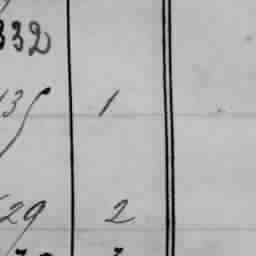 332
135 1
29 2